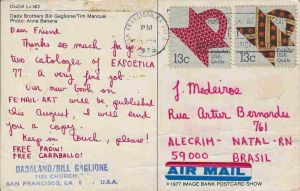 DADA LAND
Dada Brothers Bill Gaglione/Tim Mancusi
Photo: Anna Banana
Dear Friend
Thanks so much for yr
two catalogs of EXPOETICA
77. A very fine job!
Our new book on
FE-MAIL-ART will be published
this August, I will send
you a copy.
Keep in touch, please!
FREE PADIN!
FREE CARABALLO!
DADALAND/BILL GAGLIONE
1183 CHURCH
SAN FRANCISCO, CA U.S.A.
SAN FRANCISCO, CA
PM
1978
13c
USA
13c
USA
J. Medeiros
Rua Artur Bernardes
761
ALECRIM - NATAL - RN
59000 BRASIL
AIR MAIL
© 1977 IMAGE BANK POSTCARD SHOW